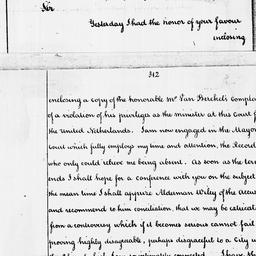 Sir
Yesterday I had the honor of your favour
enclosing
312
enclosing a copy of the honorable Mr Van Berckel's Compla
of a violation of his privileges as the minister at this Court f
the United Netherlands. I am now engaged in the Mayor
Court which fully employs my time and attention, the Record
who only could relieve me being absent. As soon as the ter
ends I shall hope for a conference with you on the subject
the mean time I shall apprize Alderman Wiley of the accus
and recommend to him conciliation, that we may be extricate
from a controversy which if it becomes serious cannot fail
proving highly disagreable, perhaps disgraceful to a City w